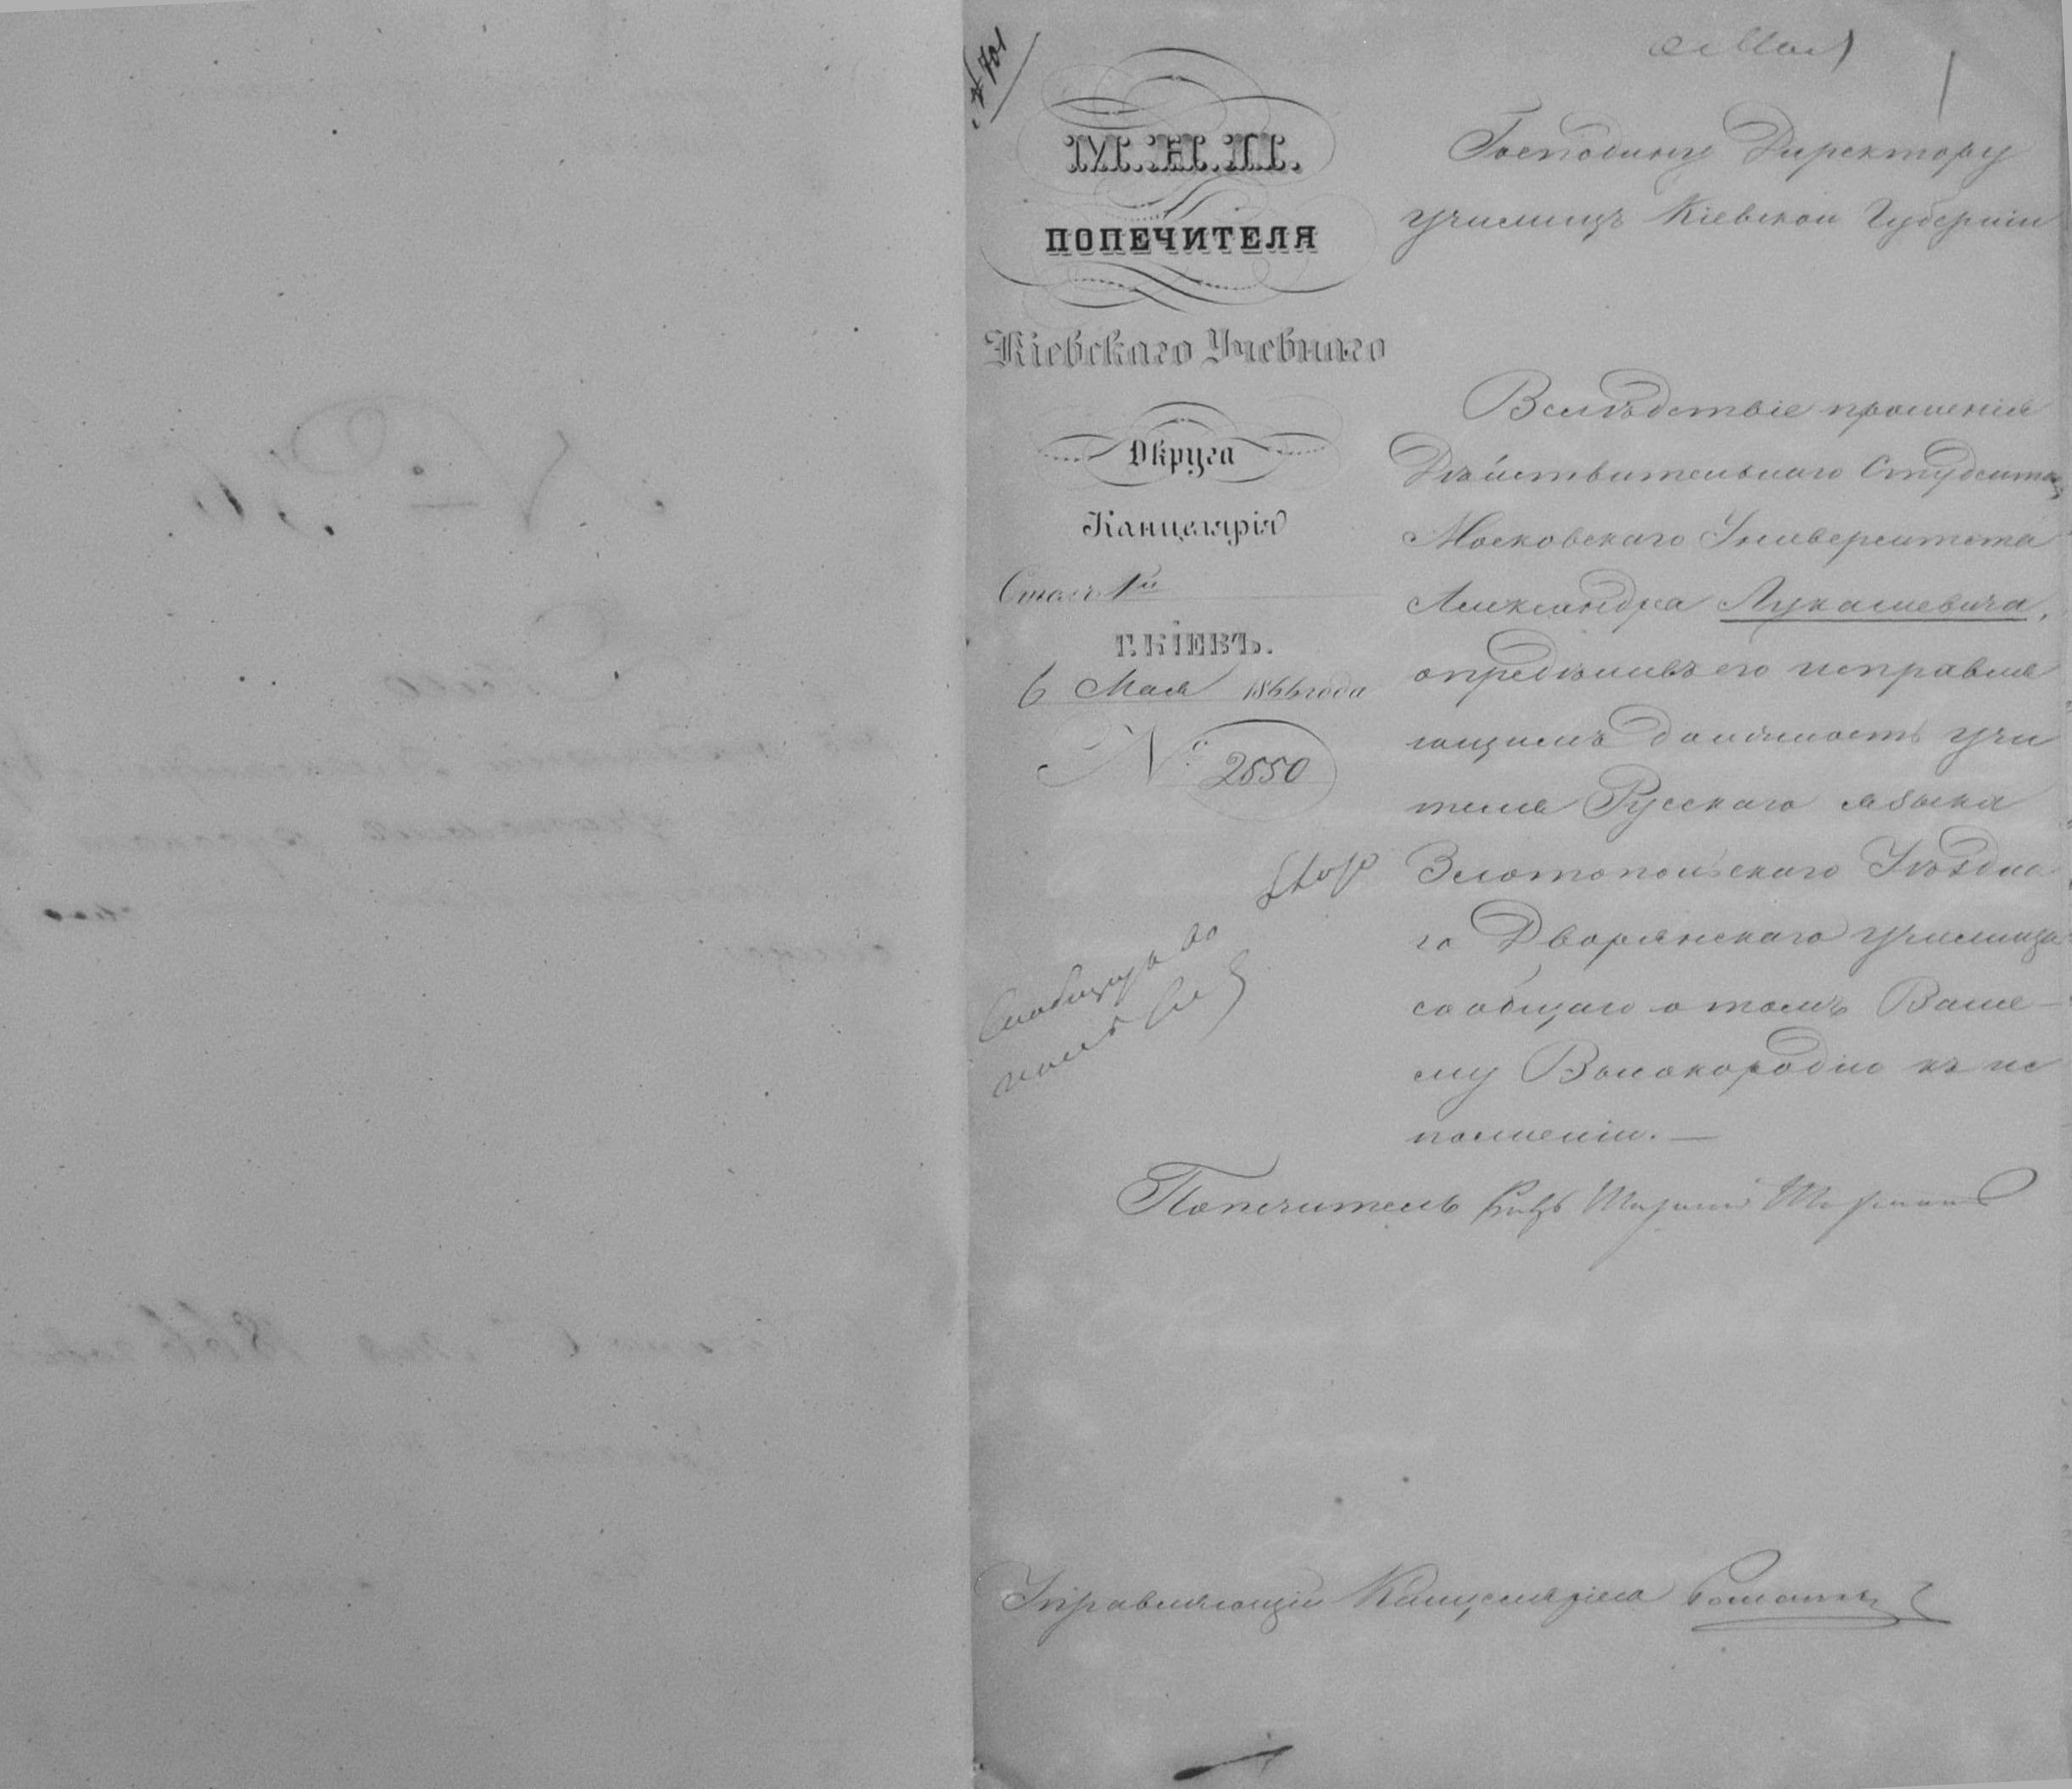 № 701
М.Н.П.
ПОПЕЧИТЕЛЯ
Кіевскаго Учебнаго
Округа
Канцелярія
Столъ 1й
Г. КІЕВЪ.
6 Мая 1866 года
№ 2550
Господину Директору
училищъ Кіевской Губерніи
Вслѣдствіе прошенія
Дѣйствительнаго Студента
Московскаго Университета
Александра Лукашевича,
опредѣливъ его исправля
ющимъ должность учи
теля Русскаго языка
Златопольскаго Уѣздна
го Дворянскаго училища
сообщаю о томъ Ваше-
му Высокородію къ ис
полненію. —
Попечитель Князь Ширинскій Шихматовъ
Управляющій Канцеляріею